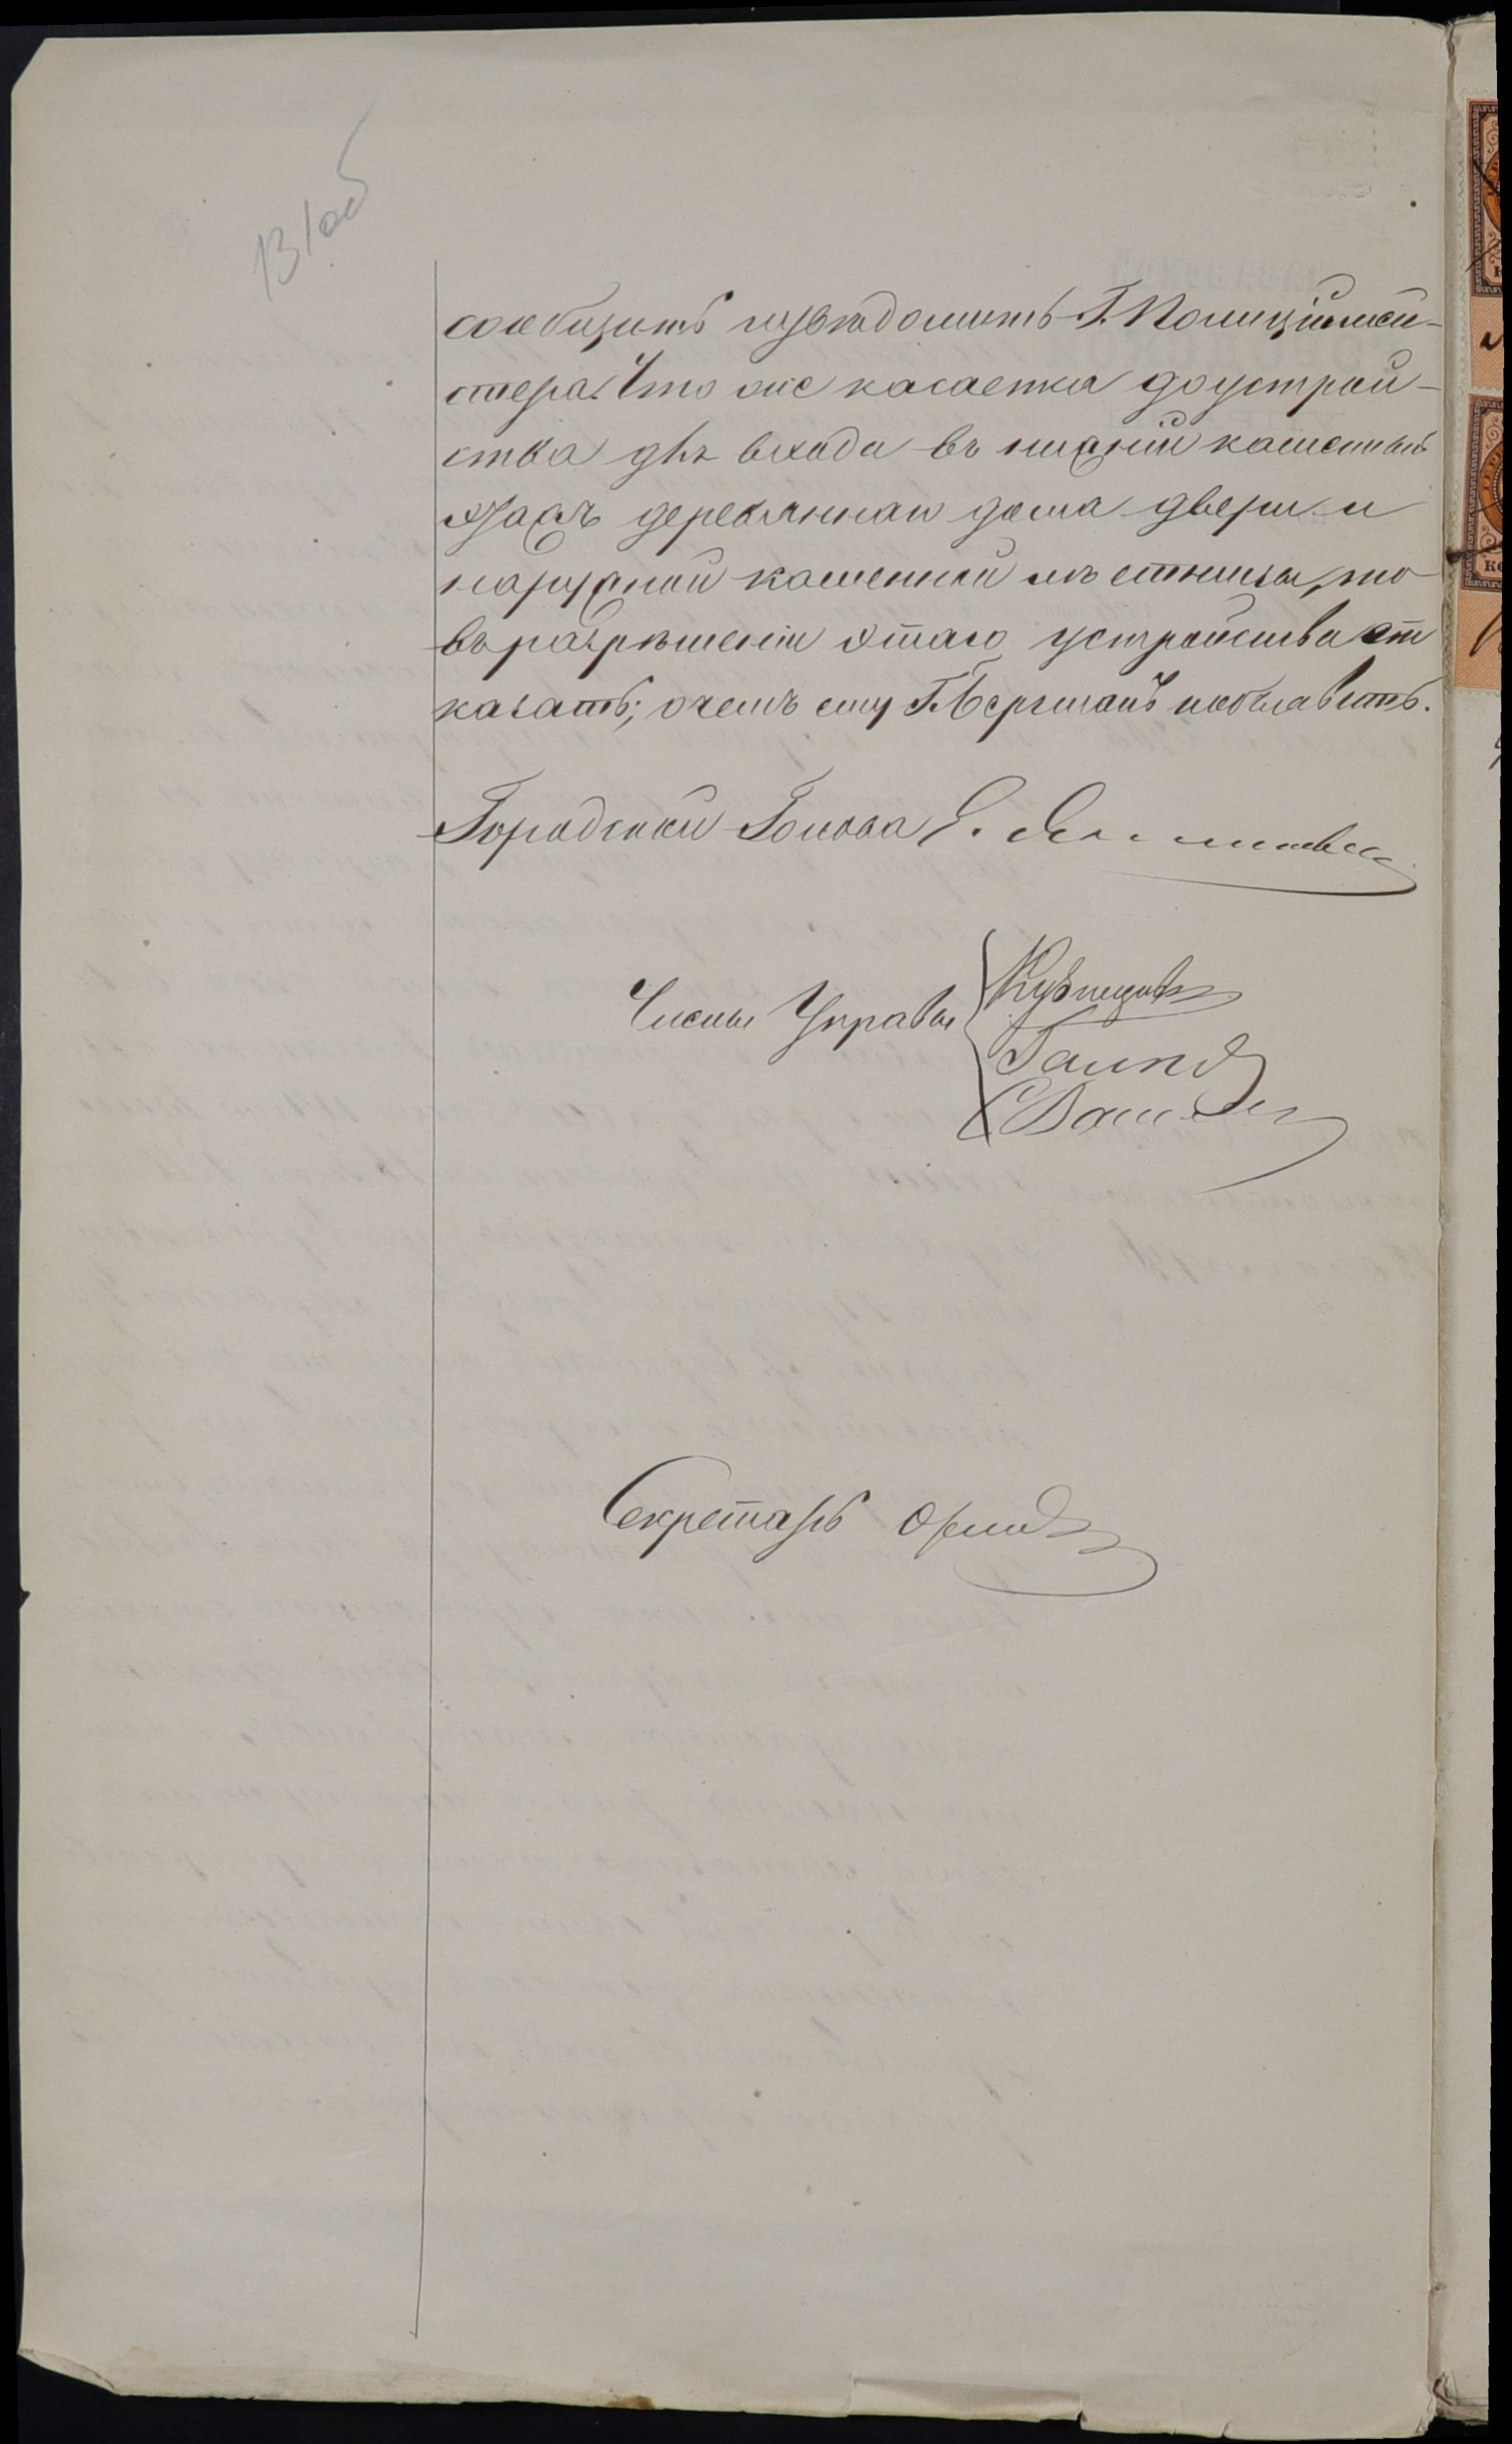 13 об
сообщить и увѣдомить Г. Полиціймей-
стера. Что же касается до устрой-
ства для входа въ нижній каменный
этажъ деревяннаго дома двери и
наружной каменной лѣстницы, то
въ разрѣшеніи этаго устройства от
казать; о чемъ ему Г. Бергманъ объявить.
Городской Голова
Члены Управы
Кузнецовъ
Секретарь